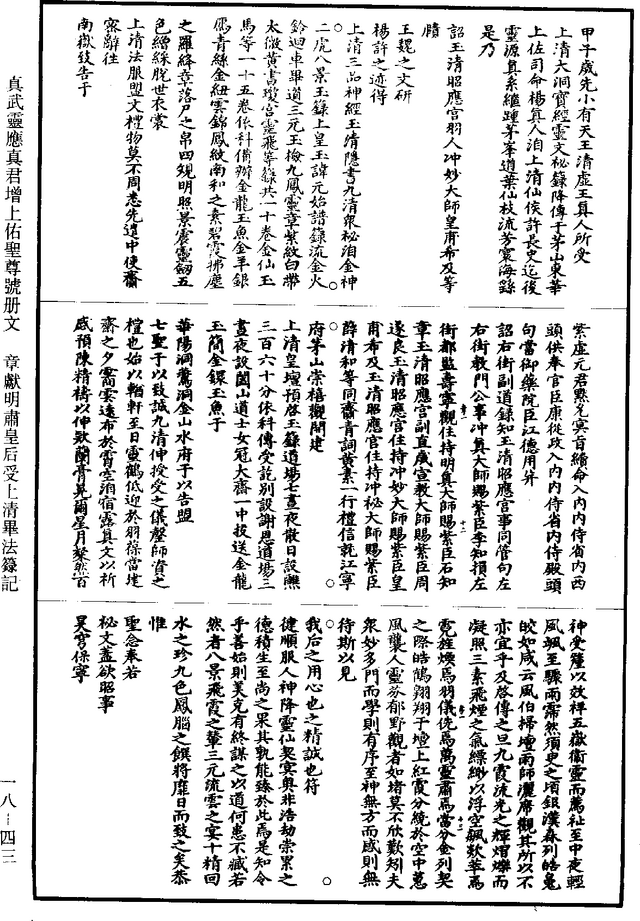 真武靈應真君增上佑聖尊號册文　章獻明肅皇后受上清畢法籙記
一八—四三
甲子歲先小有天王清虛王真人所受
上清大洞寶經靈文秘籙降傳于茅山東華
上佐司命楊真人洎上清仙侯許長史迄後
靈源真系繼踵茅峯道葉仙枝流芳寰海繇
是乃
詔玉清昭應宫羽人冲妙大師皇甫希及等
贖
王魏之文研
楊許之迹得
上清三品神經玉清隱書九清衆秘洎金神
二虎八景玉籙上皇玉諱元始譜籙流金火
鈴迴車畢道三元玉檢九鳳靈章紫紋白帶
太微黃書瓊宫靈飛等籙共一十卷金仙玉
馬等一十五卷依科備辦金龍玉魚金羊銀
鴈青絲金紐雲錦鳳紋南和之素碧霞拂塵
之羅絳章落尸之帛四規明照景震靈劒五
色繒綵脫世衣裳
上清法服盟文禮物莫不周悉先遣中使齋
密辭往
南嶽致告于
紫虛元君默允冥肯續命入内内侍省内西
頭供奉官臣康從政入内内侍省内侍殿頭
勾當御藥院臣江德用并
詔右街副道録知玉清昭應宫事同管勾左
右街教門公事冲真大師賜紫臣李知損左
街都監壽寧觀住持明真大師賜紫臣石知
章玉清昭應宫副直歲宣教大師賜紫臣周
遂良玉清昭應宫住持冲妙大師賜紫臣皇
甫希及玉清昭應宫住持冲秘大師賜紫臣
薛清和等同齋青詞黃素一行禮信詣江寧
府茅山崇禧觀開建
上清皇壇預啓玉籙道場七晝夜散日設醮
三百六十分依科傳受訖别設謝恩道場三
晝夜設闔山道士女冠大齋一中投送金龍
玉簡金鐶玉魚于
華陽洞鸑洞金山水府于以告盟
七聖于以致誠九清伸授受之儀罄師資之
禮也始以輶軒至日靈鶴低迎於羽葆當建
齋之夕霱雲遠布於霄空洎宿露真文以祈
感預陳精禱以伸欵蘭膏晃爾星月粲然百
神受釐以效祥五嶽衛靈而薦祉至中夜輕
風颯至驟雨霈然須臾之頃銀漢森列皓魄
皎如咸云風伯掃壇雨師灑席觀其所以不
亦宜乎及啓傳之旦九霞流光之輝熠爍而
凝照三素飛煙之氣縹緲以浮空飆歘宰爲
霓旌煙爲羽儀侁爲萬靈肅爲當分金列契
之際皓鶴翱翔于壇上紅霞分繞於空中蒽
風襲人靈芬郁野觀者如堵莫不欣歎矧夫
衆妙多門而學則有序至神無方而感則無
待斯以見
我后之用心也之精誠也符
健順服人神降靈仙契冥奥非浩劫崇累之
德積生至尚之果其孰能臻於此焉是知令
乎善始則美克有終謀之以道何患不臧若
然者八景飛霞之輦三元流雲之宴十精回
水之珍九色鳳腦之饌將靡日而致之矣恭
惟
聖念奉若
秘文蓋欲昭事
昊穹保寧